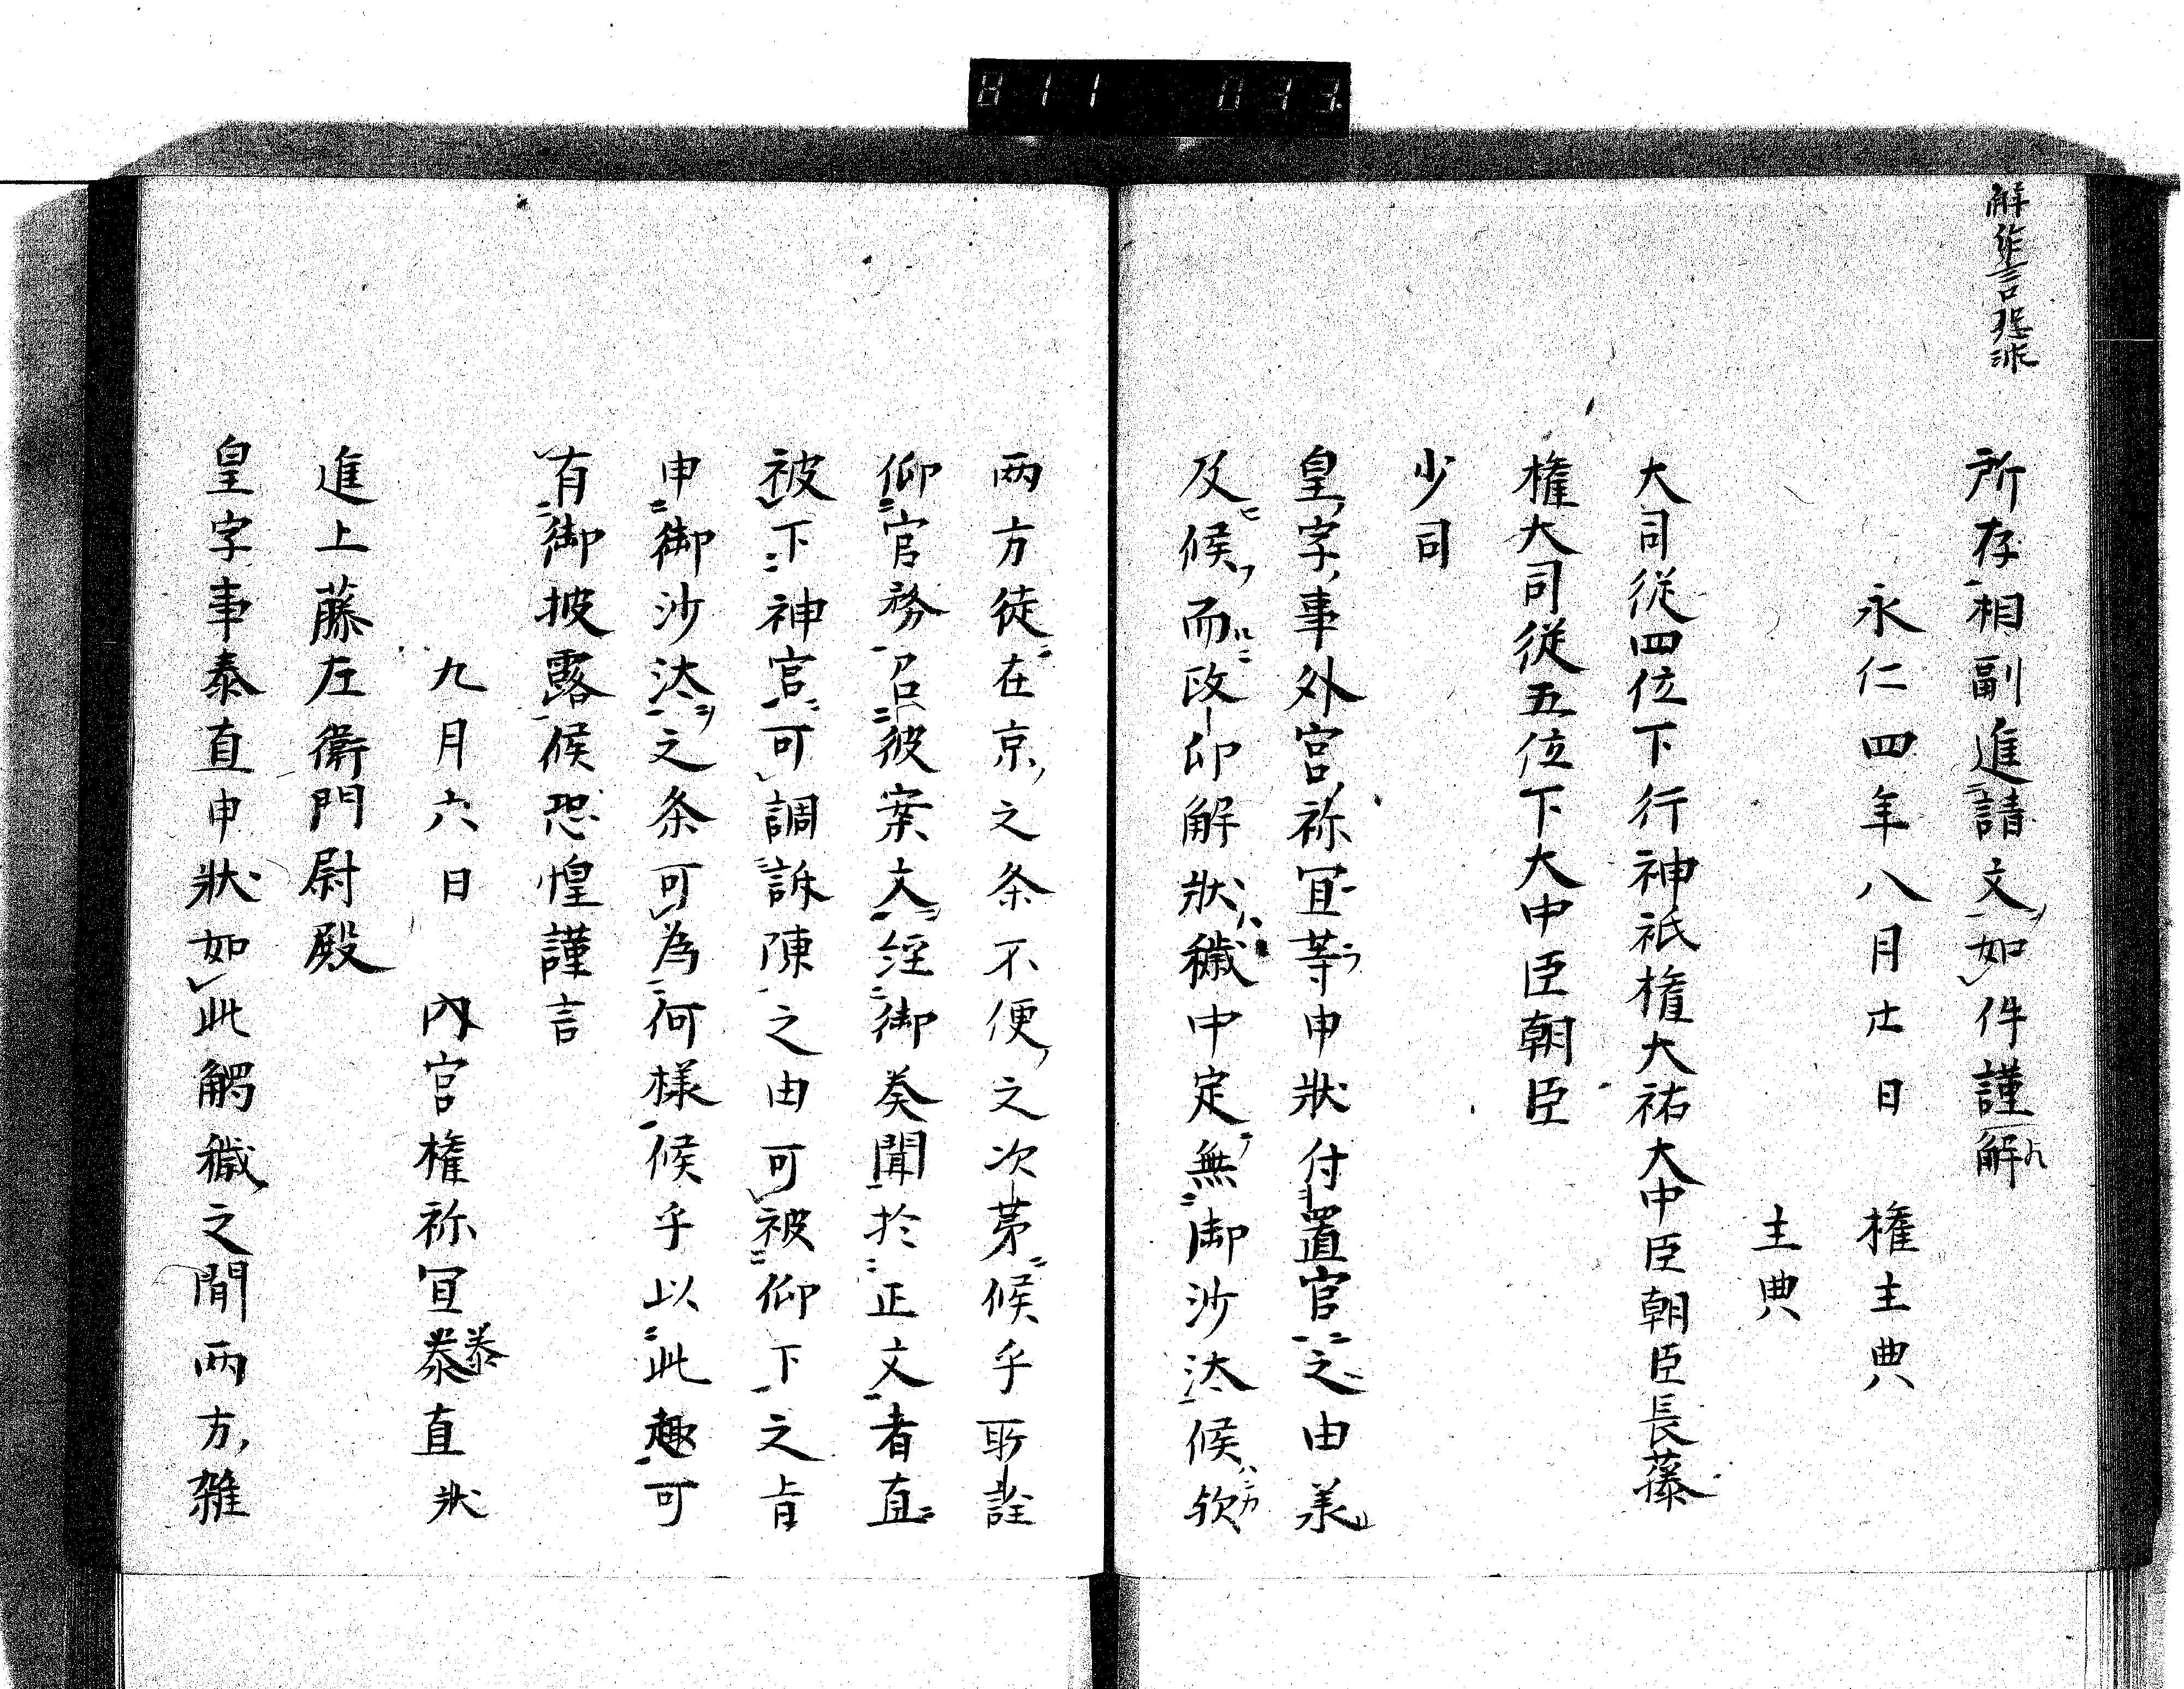 解作言非
所存相副進請文如件謹解
永仁四年八月廿日　権主典
主典
大司従四位下行神祇権大祐大中臣朝臣長藤
権大司従五位下大中臣朝臣
少司
皇字事外宮祢宜等申状付置官之由承
及候而改印解状穢中定無御沙汰候欤
両方徒在京之条不便之次第候乎所詮
仰官務召彼案文経御奏聞於正文者直
被下神宮可調訴陳之由可被仰下之旨
申御沙汰之条可為何様候乎以此趣可
有御披露候恐惶謹言
九月六日　内宮権祢宜泰直状
泰
進上藤左衛門尉殿
皇字事泰直申状如此觸穢之間両方雑